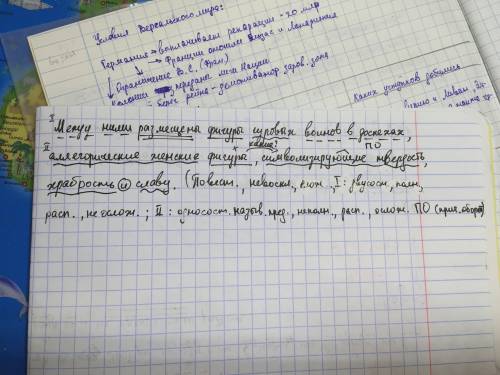 Условия Версальского мира:
Германия → выплачивает репарации - 20 млр
→ Франции отошли Эльзас и Лотарингия
Ограничение В.С. (Фран)
колонии переданы лиге Наций
берег рейна - демилитаризов. зона
Каких уступков добились
I
Между ними размещены фигуры суровых воинов в доспехах,
II какие? ПО
аллегорические женские фигуры, символизирующие твердость,
храбрость и славу. (Повеств., невоскл., слож., I: двусост., полн.,
расп., не ослож.; II: односост. назыв. пред., неполн., расп., ослож. ПО (прич. оборот)